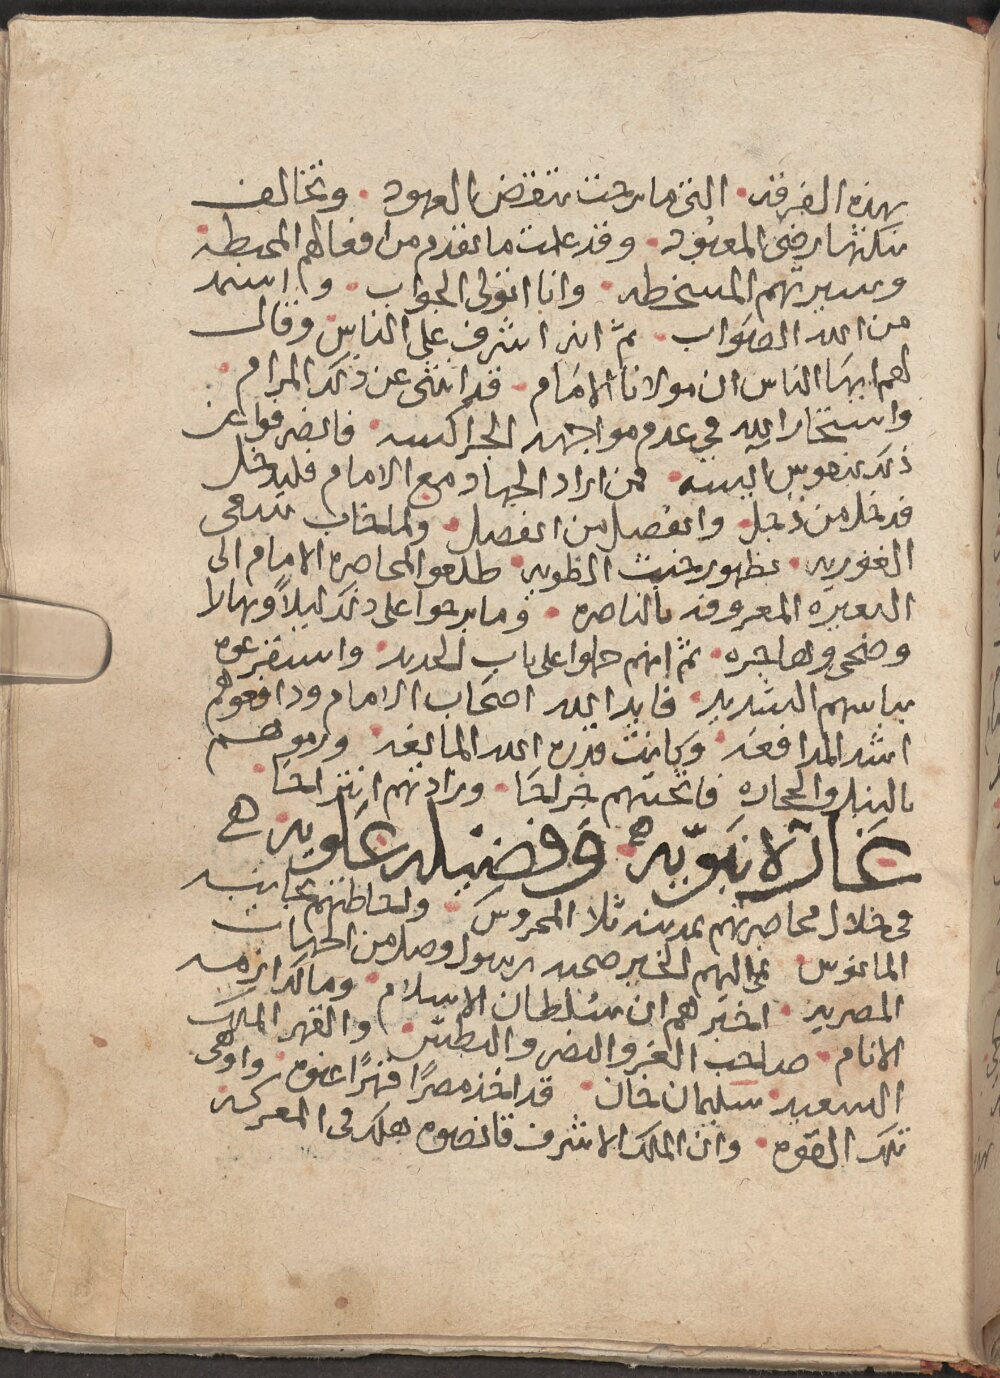 بهذه الفرقه التى ما برحت تنقض العهود وتخالف
بنكثها رضى المعبود وقد علمت ما تقدم من افعالهم المحبطه
وسيرتهم المسخطه وانا اتولى الجواب واستمد
من الله الصواب ثم انه اشرف على الناس وقال
لهم ايها الناس ان مولانا الامام قد انثنى عن ذلك المرام
واستخار الله فى عدم مواجهه الجراكسه فانصرفوا عن
ذلك بنفوس آيسه فمن اراد الجهاد مع الامام فليدخل
فدخل من دخل وانفصل من انفصل ولما خاب سعى
الغوريه بظهور خبث الطويه طلعوا لمحاصره الامام الى
المعروفه بالناصره وما برحوا على ذلك ليلاً ونهارا
وضحى وهاجره ثم انهم حملوا على باب الحديد واستفزعوه
بباسهم الشديد فايد الله اصحاب الامام ودافعوهم
اشد المدافعه وكانت قدره الله المانعه ورموهم
بالنبل والحجاره فاثخنتهم جراحا وزادتهم انتزاحا
غارة نبويّه وفضيله علويه
فى خلال محاصرتهم بمدينه ثلا المحروس واحاطتهم بجانبه
المانوس نمى اليهم الخبر صحبه رسول وصل من الجهات
المصريه اخبرهم ان سلطان الاسلام ومالك ازمه
الانام صاحب العز والنصر والبطش والقهر الملك
السعيد سليمان خان قد اخذ مصرًا قهرًا عنوه واوهى
تلك القوه وان الملك الاشرف قانصوه هلك فى المعركه